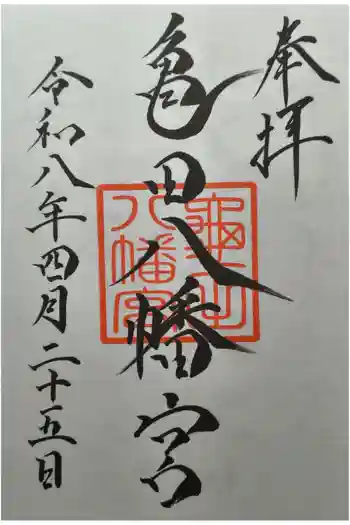 奉拝
亀田八幡宮
亀田
八幡宮
令和八年四月二十五日